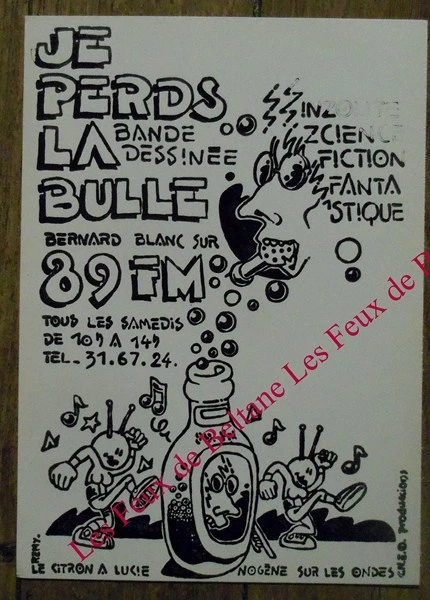 JE
PERDS
LA
BULLE
BANDE
DESSINÉE
INZOLITE
ZCIENCE
FICTION
FANTA
STIQUE
BERNARD BLANC SUR
89 FM
TOUS LES SAMEDIS
DE 10H A 14H
TEL. 31.67.24.
REMY.
LE CITRON A LUCIE
NOGÈNE SUR LES ONDES
Les Feux de Beltane Les Feux de B